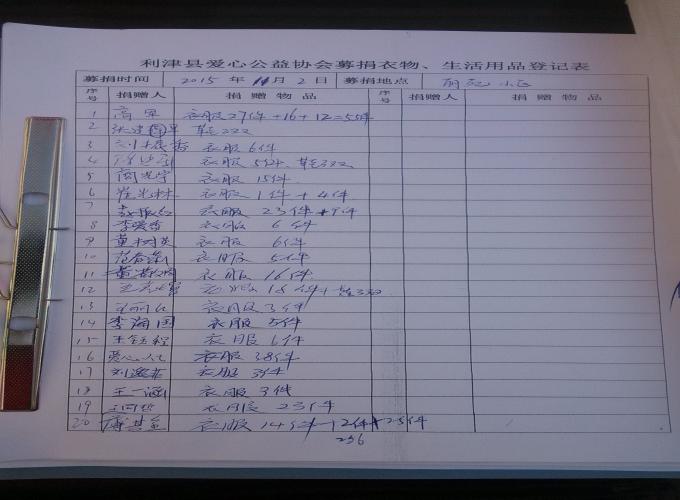 利津县爱心公益协会募捐衣物、生活用品登记表
募捐时间 2015 年 11 月 2 日 募捐地点 小区
序号 捐赠人 捐赠物品 序号 捐赠人 捐赠物品
1 高军 衣服27件+16+12=55件
2 鞋2双
3 衣服6件
4 衣服5件、鞋3双
5 衣服15件
6 衣服1件+4件
7 衣服23件+9件
8 李爱香 衣服6件
9 董树英 衣服6件
10 衣服5件
11 衣服16件
12 衣服18件+鞋3双
13 衣服3件
14 李海国 衣服5件
15 王钰程 衣服6件
16 爱心人 衣服38件
17 衣服3件
18 王一涵 衣服3件
19 衣服23件
20 衣服14件+12件+25件
256